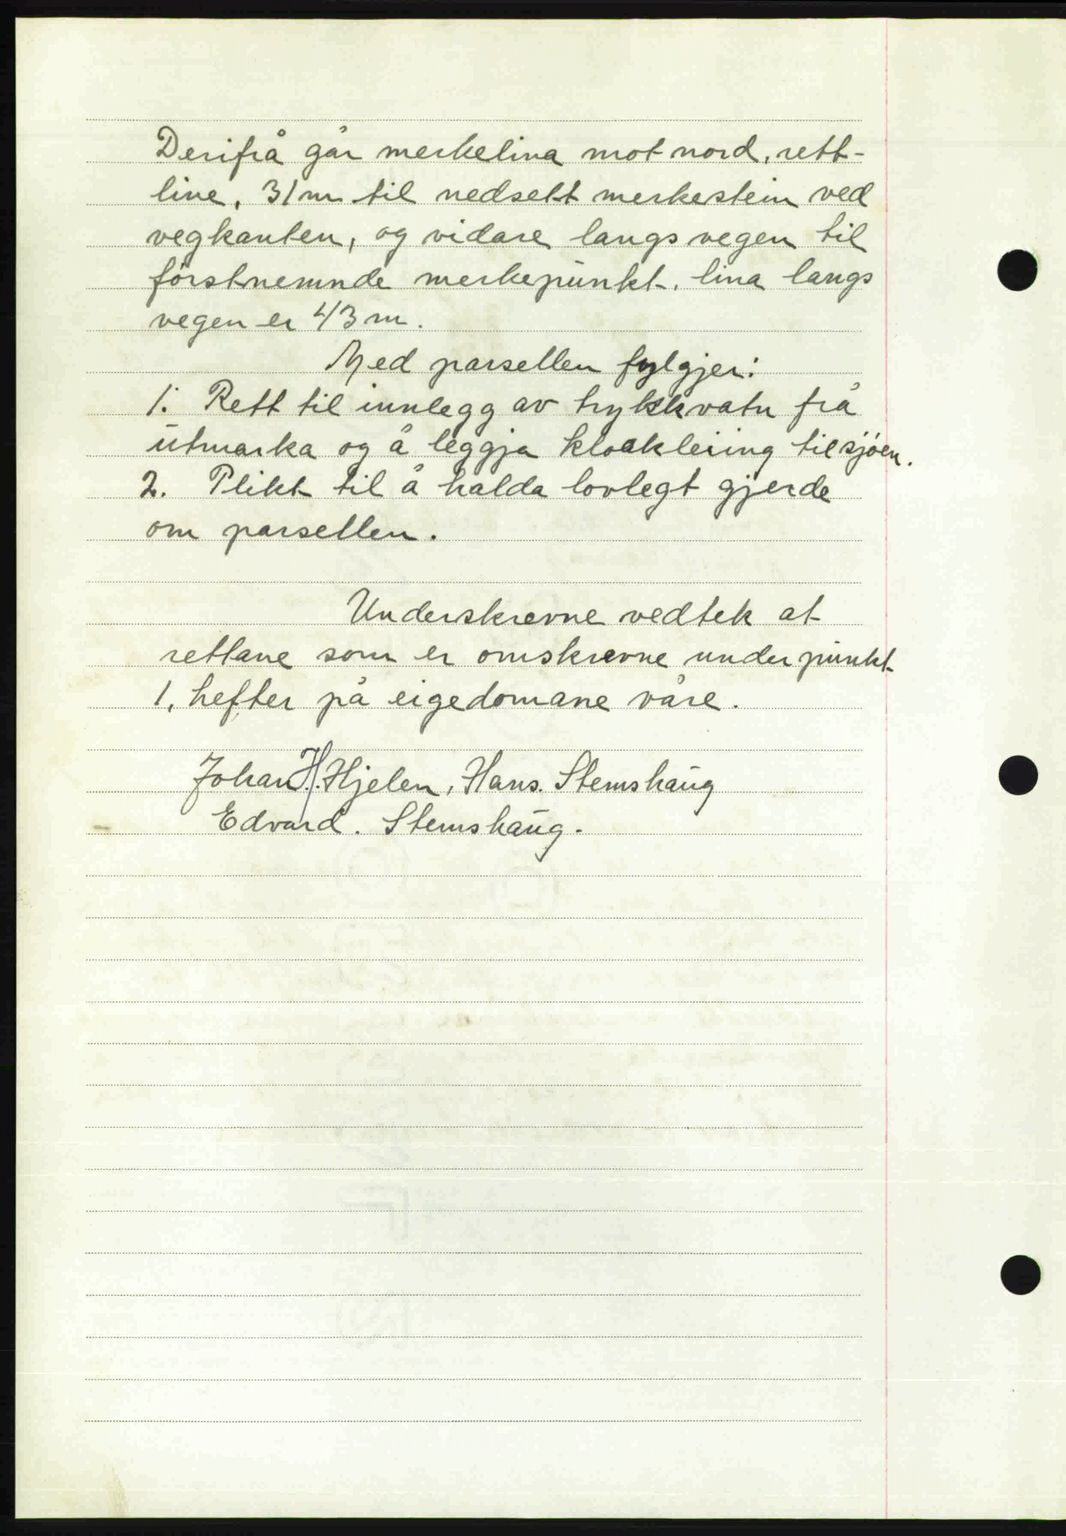 Derifrå går merkelina mot nord, rett-
line, 31 m til nedsett merkestein ved
vegkanten, og vidare langs vegen til
förstnemnde merkepunkt, lina langs
vegen er 43 m.
Med parsellen fylgjer:
1. Rett til innlegg av trykkvatn frå
utmarka og å leggja kloakleiing til sjöen.
2. Plikt til å halda lovlegt gjerde
om parsellen.
Underskrevne vedtek at
rettane som er omskrevne under punkt
1, hefter på eigedomane våre.
Johan H. Hjelen, Hans. Stemshaug
Edvard. Stemshaug.